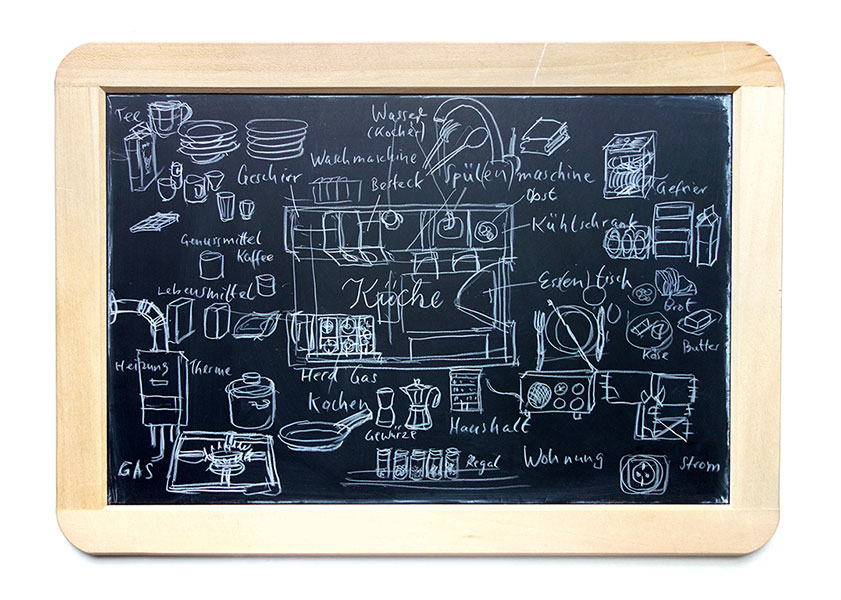 Tee
Wasser
(Kocher)
Waschmaschine
Geschirr
Besteck
Spül(en)maschine
Gefrier
Obst
Kühlschrank
Genussmittel
Kaffee
Lebensmittel
Essen
tisch
Küche
Brot
Butter
Käse
Heizung
Therme
Herd Gas
Kochen
Gewürze
Haushalt
GAS
Regal
Wohnung
Strom